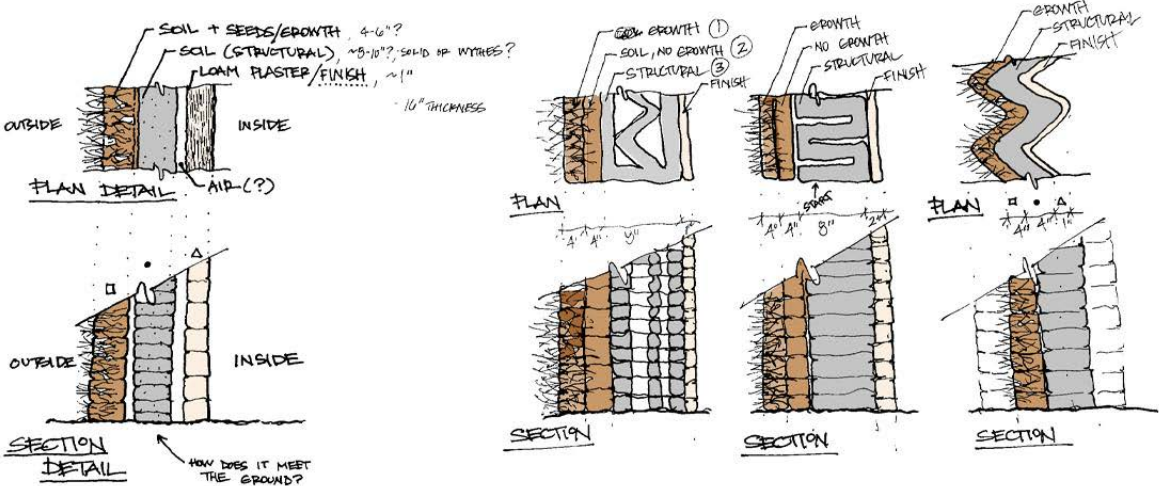 SOIL + SEEDS/GROWTH, 4-6"?
SOIL (STRUCTURAL), ~8-10"?, SOLID OR WYTHES?
LOAM PLASTER/FINISH, ~1"
16" THICKNESS
OUTSIDE
INSIDE
PLAN DETAIL
AIR (?)
OUTSIDE
INSIDE
SECTION
DETAIL
HOW DOES IT MEET
THE GROUND?
GROWTH 1
SOIL, NO GROWTH 2
STRUCTURAL 3
FINISH
PLAN
4" 4"
SECTION
GROWTH
NO GROWTH
STRUCTURAL
FINISH
START
4" 4" 8" 2"
SECTION
GROWTH
STRUCTURAL
FINISH
PLAN
4" 4" 1"
SECTION